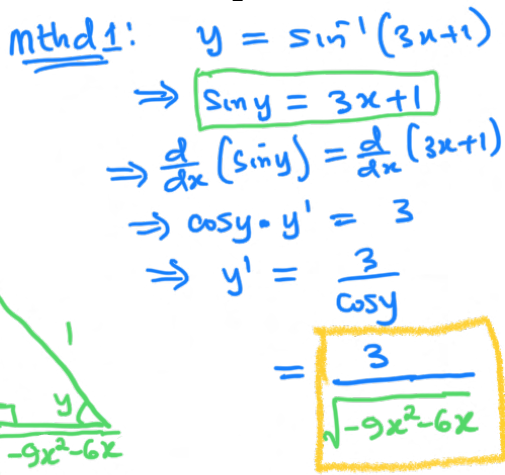 mthd 1: y = sin⁻¹(3x+1)
⇒ Sin y = 3x+1
⇒ d/dx (Sin y) = d/dx (3x+1)
⇒ cosy · y' = 3
⇒ y' = 3/cosy
1
= 3/√(-9x²-6x)
y
-9x²-6x